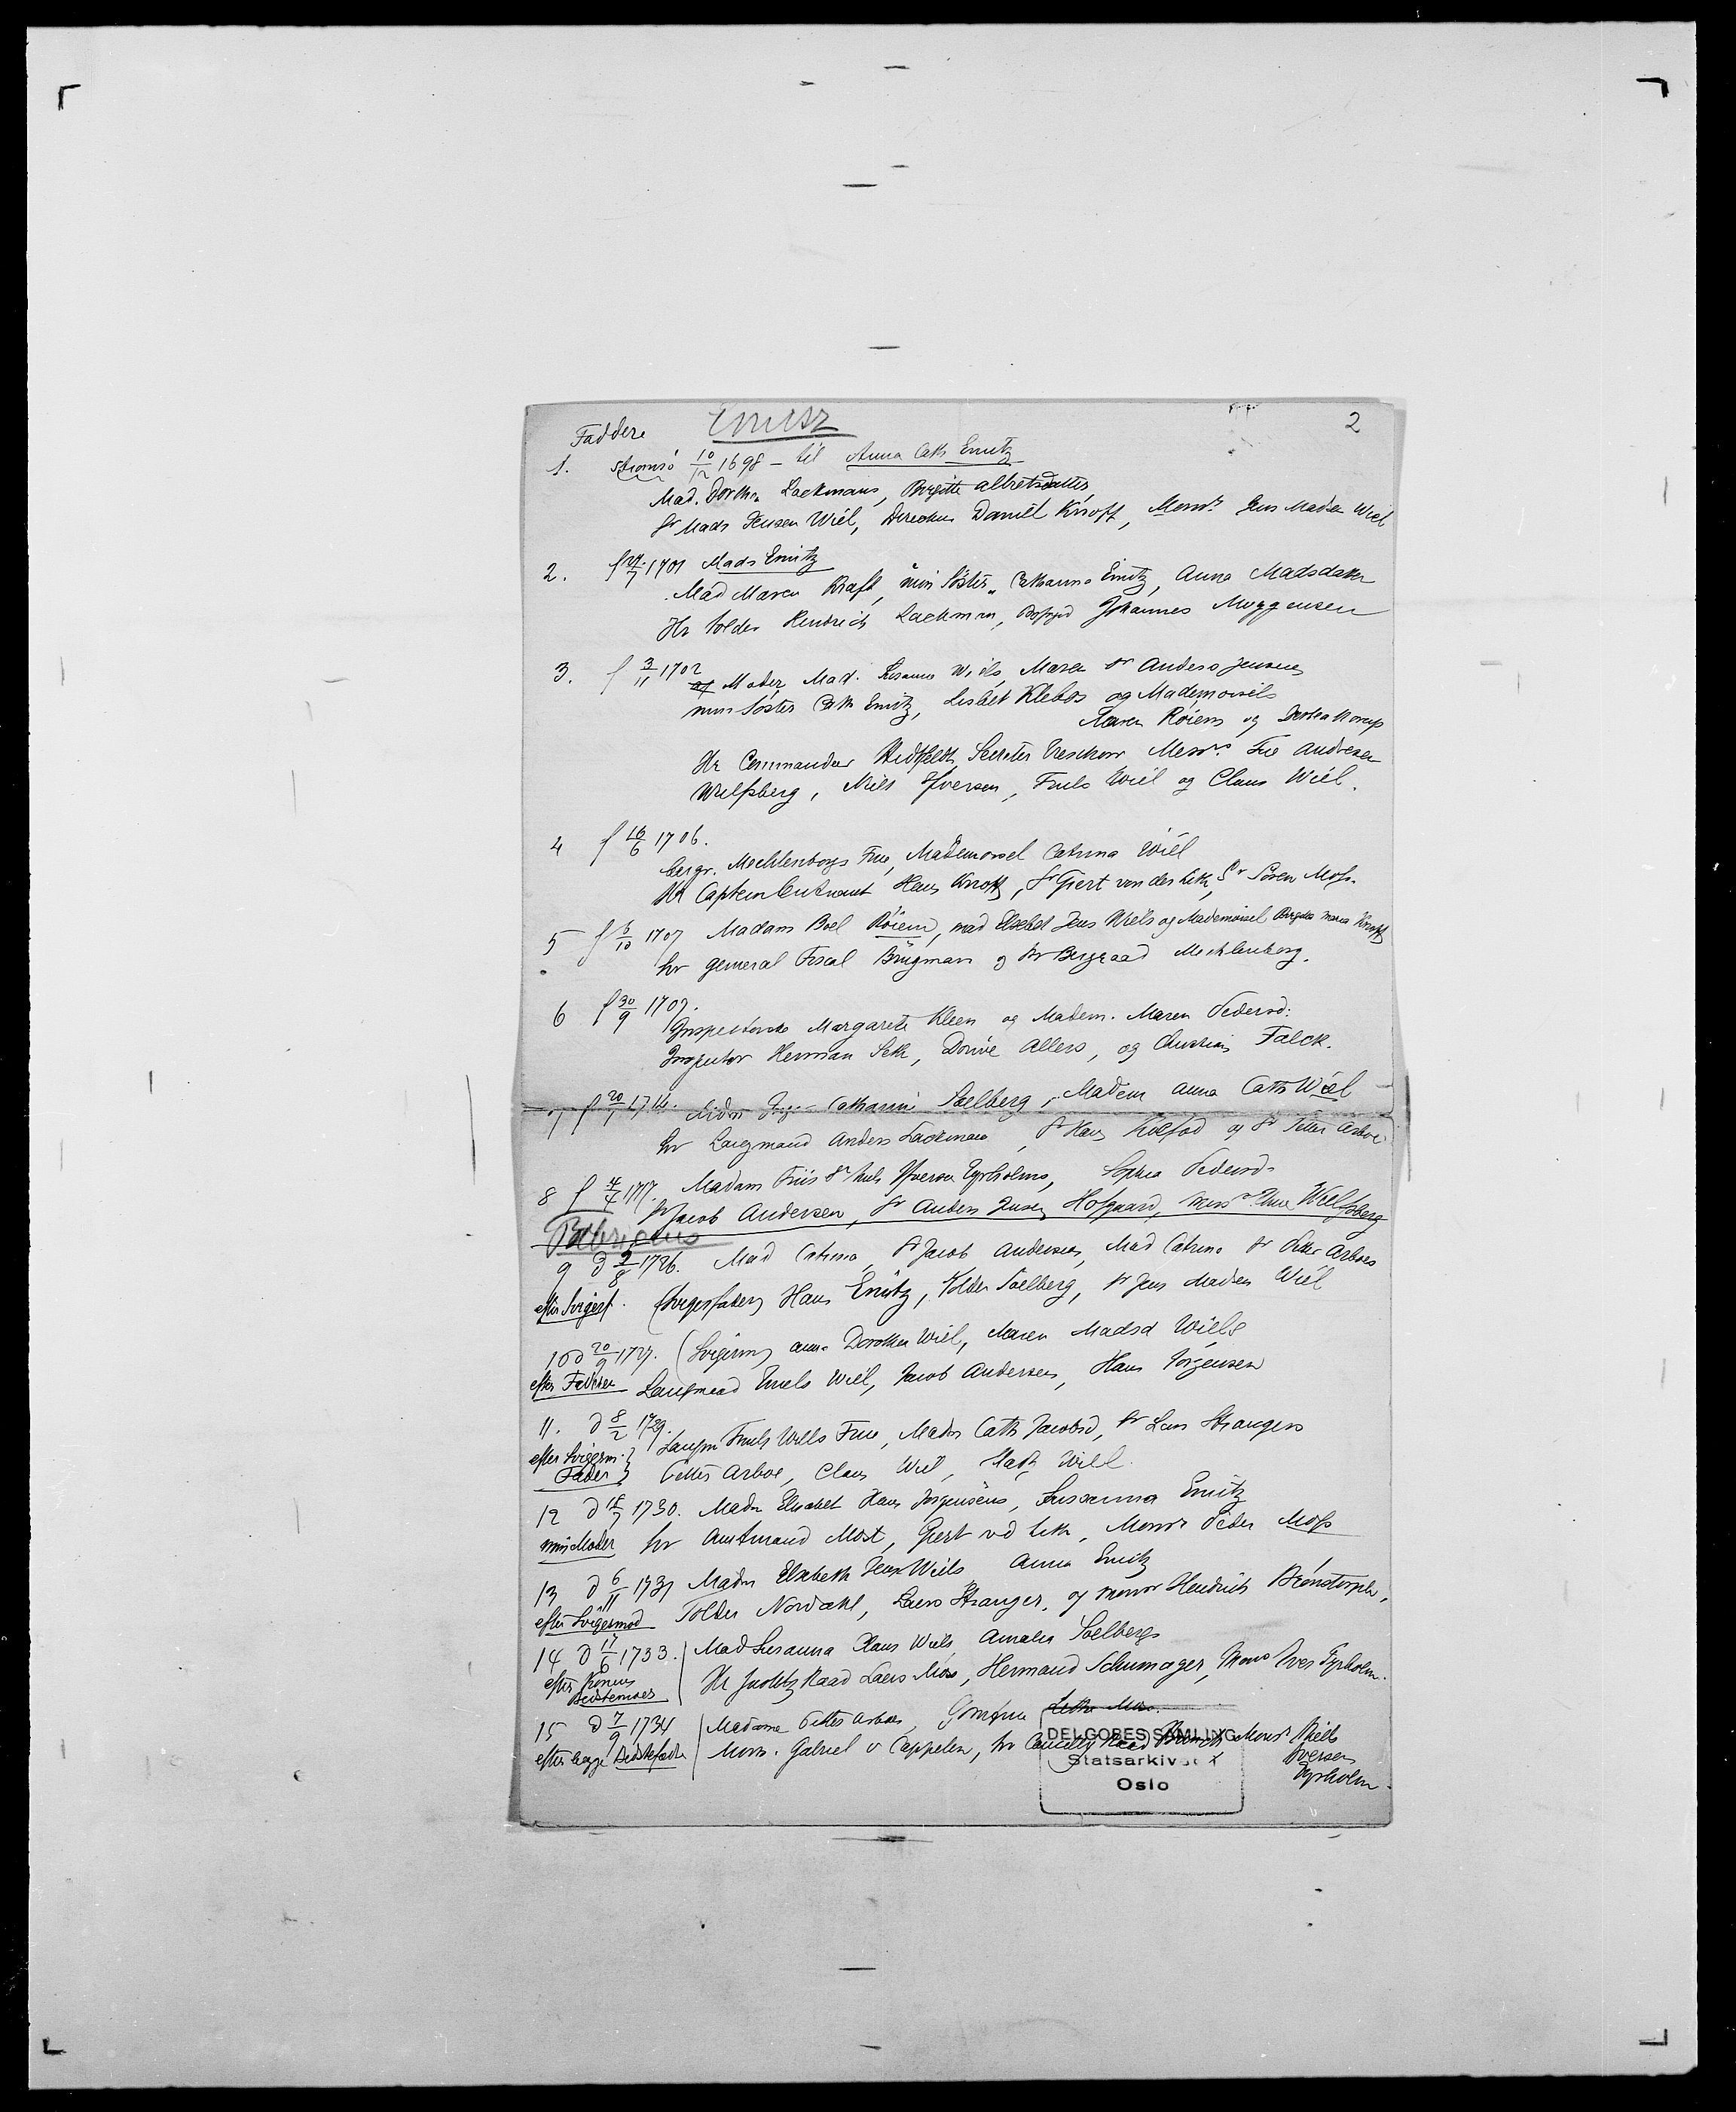 Emitz 2
Faddere
1. Strømsø 10/12 1698 – til Anna Cath Emitz
Mad. Dorthea Lackmans, Birgitte albretsdatter,
Sr Mads Jensen Wiel, Directeur Daniel Knoff, Monsr Jens Madsen Wiel
2. f 24/7 1701 Mads Emitz
Mad Maren Kraft, "min Søster" Catharina Emitz, Anna Madsdatter
Hr Tolder Hendrich Lackman, Johannes Moggensen
3. f 3/11 1702
af Moder Mad. Susanna Wiels, Maren Sr Anders Jensens
min Søster Cath Emitz, Lisbet Klebos og Mademoisels
Maren Röiem og Dorthea Korup
Hr Commandeur Hudtfeldt, Secreter Mesrs. Tue Andresen
Wulfsberg, Niels Iversen, Truls Wiel og Claus Wiel.
4 f 16/6 1706.
Bergr. Mechlenborgs Frue, Mademoisel Catrina Wiel
Hr Captein Leutnant Hans Knoff, Sr Giert von der Lith, Sr Søren Moss.
5 f 6/10 1707 Madam Boel Röiem, mad Elsebet Jens Wiels og Mademoisel Birgitte Maria Knoff
hr general Fiscal Brügman og hr Bergraad Mechlenberg.
6 f 30/9 1709.
Inspectorske Margarete Kleen og Madem. Maren Pedersd:
Inspector Herman Leth, Dorive Allers, og Christian Falck.
7 f 20/1 1714. Catharine Soelberg, Madem Anna Cath Wiel
hr Laugmand Anders Lackman, Sr Hans Kolfod og Sr Petter Arboe
8 f 4/4 1717. Madam Friis Sr Niels Iversen Tyrholms, Sophia Pedersd.
Sr Jacob Andersen, Sr Anders Jensen Hofgaard, Mons Tue Wulfsberg
9 d 2/8 1726. Mad Catrina Sr Jacob Andersens, Mad Catrina Sr Petter Arboes
efter Svigerf. (Svigerfader) Hans Emitz, Tolder Soelberg, Sr Jens Madsen Wiel
10 d 20/9 1727. (Svigerm) Anna Dorothea Wiel, Maren Madsd Wiels
efter Faderen Laugmand Truels Wiel, Jacob Andersen, Hans Jörgensen
11. d 8/2 1729. Laugm Truels Wiels Frue, Madm Cath Jacobsd, Sr Lars Strangers
efter Svigerm. }
Fader } Petter Arboe, Claus Wiel, Mads Wiel
12 d 18/7 1730. Madm Elisabet Hans Jörgensens, Susanna Emitz
min Moder hr Amtmand Möst, Giert v d Lith, Monsr Peder Moss
13 d 6/11 1731 Madm Elsebeth Jens Wiels Anna Emitz
efter Svigermod Tolder Nordahl, Laers Stranger, og Monsr Hendrich Brönstorph,
14 d 17/6 1733. Mad Susanna Claus Wiels, Amalia Soelbergs
efter Konens Bestemoer Hr Justits Raad Laers Moss, Hermand Schumager, Mons Iver Tyrholm.
15 d 7/9 1734 Madame Petter Arboes, Jomfrue
efter begge Bestefædre Mons. Gabriel v Cappelen, hr Cancelli Raad Monsr Niels
Iversen
Tyrholm.
DELGOBES SAMLING
Statsarkivet
Oslo